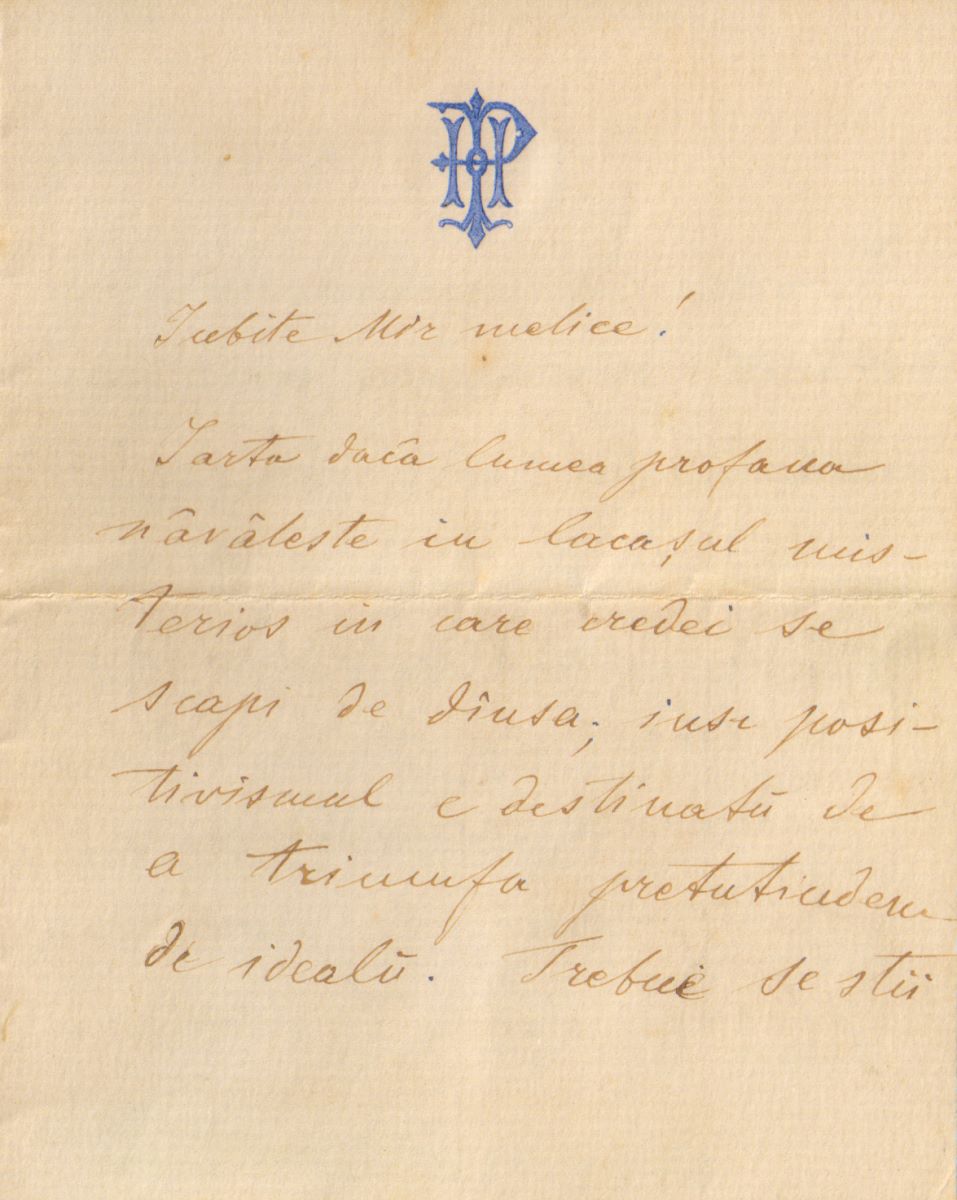 Iubite Mir melice!
Iarta dacâ lumea profana
nâvâleste in lacașul mis-
terios in care credei se
scapi de dînsa; inse posi-
tivismul e destinatŭ de
a triumfa pretutindeni
de idealŭ. Trebue se stii